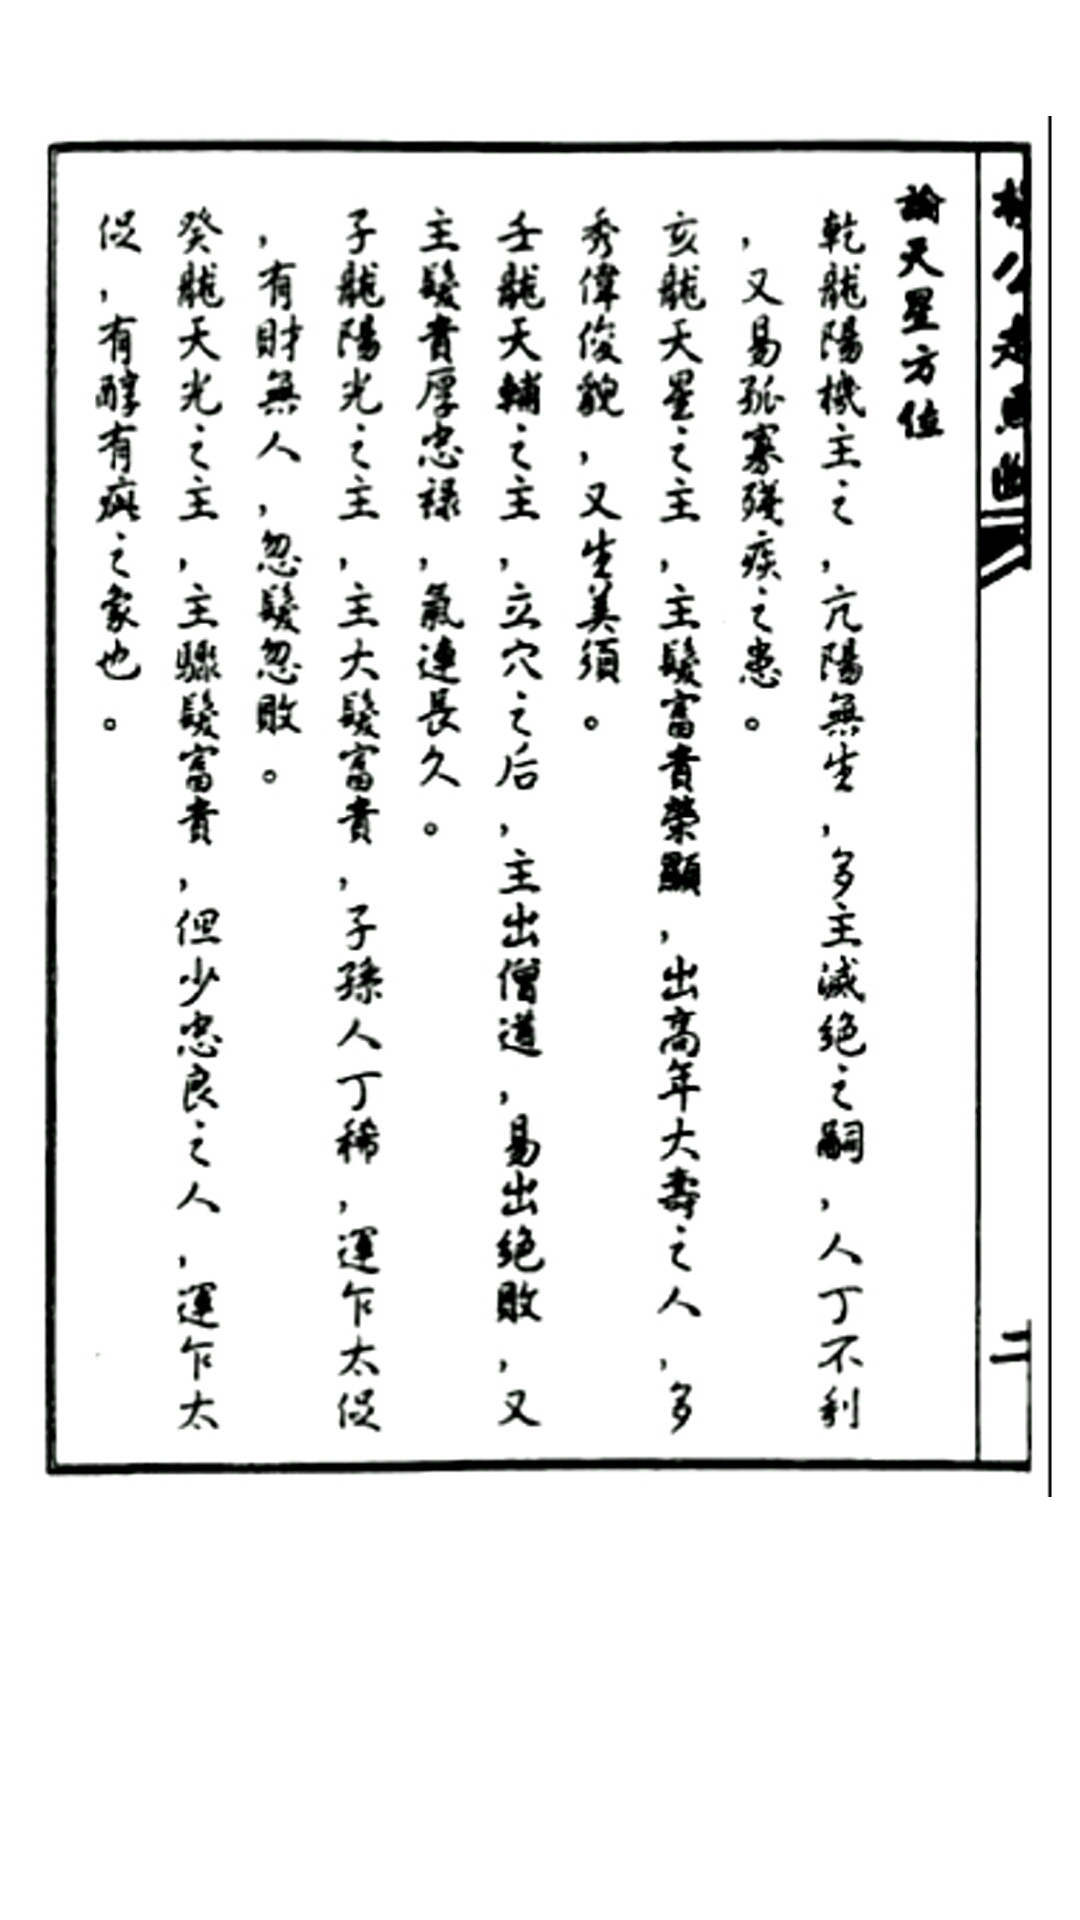 論天星方位
乾龍陽機主之，亢陽無生，多主滅絕之嗣，人丁不利
，又易孤寡殘疾之患。
亥龍天星之主，主發富貴榮顯，出高年大壽之人，多
秀偉俊貌，又生美須。
壬龍天輔之主，立穴之后，主出僧道，易出絕敗，又
主髮貴厚忠祿，氣連長久。
子龍陽光之主，主大髮富貴，子孫人丁稀，運乍太促
，有財無人，忽髮忽敗。
癸龍天光之主，主驟髮富貴，但少忠良之人，運乍太
促，有醇有疵之象也。
公
二